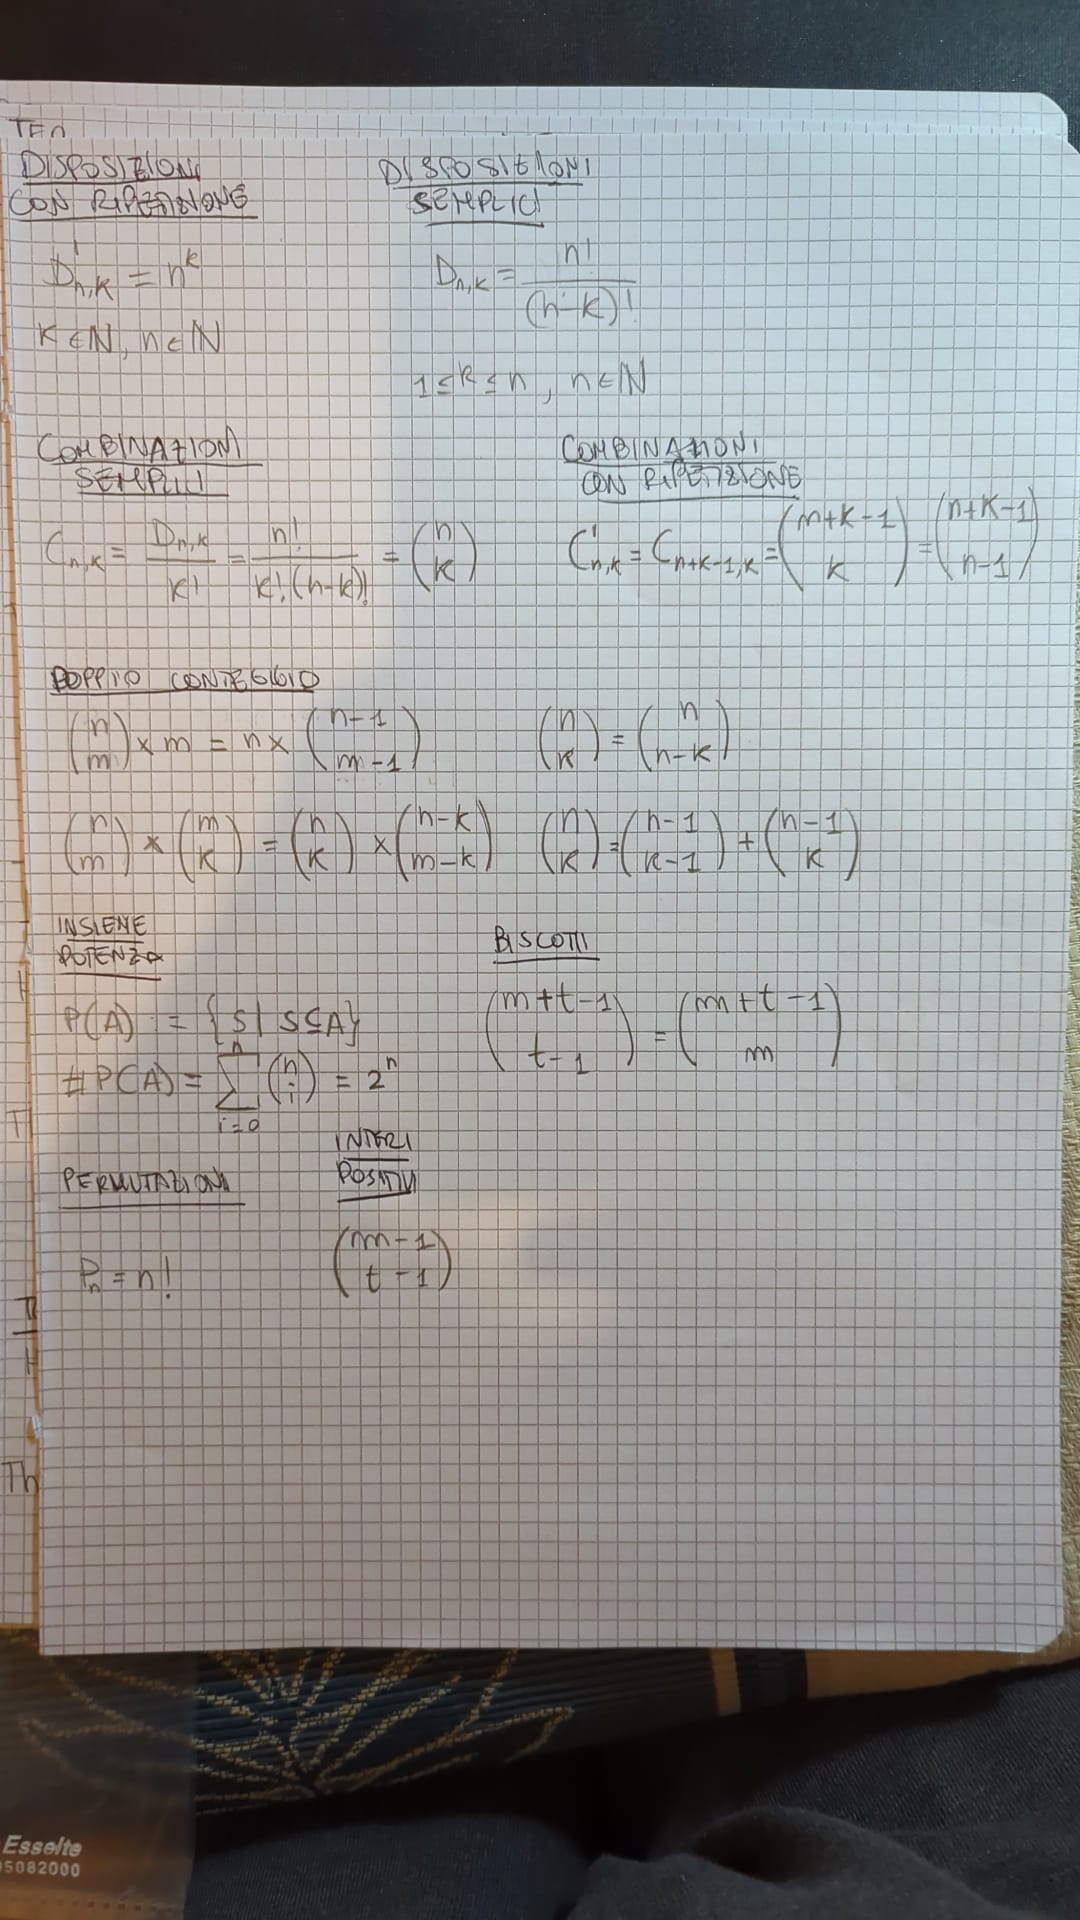 DISPOSIZIONI
CON RIPETIZIONE
D'n,k = n^k
k ∈ N, n ∈ N
DISPOSIZIONI
SEMPLICI
Dn,k = n! / (n-k)!
1 ≤ k ≤ n, n ∈ N
COMBINAZIONI
SEMPLICI
Cn,k = Dn,k / k! = n! / k!(n-k)! = (n k)
COMBINAZIONI
CON RIPETIZIONE
C'n,k = Cn+k-1,k = (m+k-1 k) = (n+k-1 n-1)
DOPPIO CONTEGGIO
(n m) × m = n × (n-1 m-1)
(n k) = (n n-k)
(n m) × (m k) = (n k) × (n-k m-k)
(n k) = (n-1 k-1) + (n-1 k)
INSIEME
POTENZA
P(A) = {S | S ⊆ A}
#P(A) = ∑ i=0 n (n i) = 2^n
BISCOTTI
(m+t-1 t-1) = (m+t-1 m)
PERMUTAZIONI
Pn = n!
INTERI
POSITIVI
(m-1 t-1)
Th
Esselte
5082000